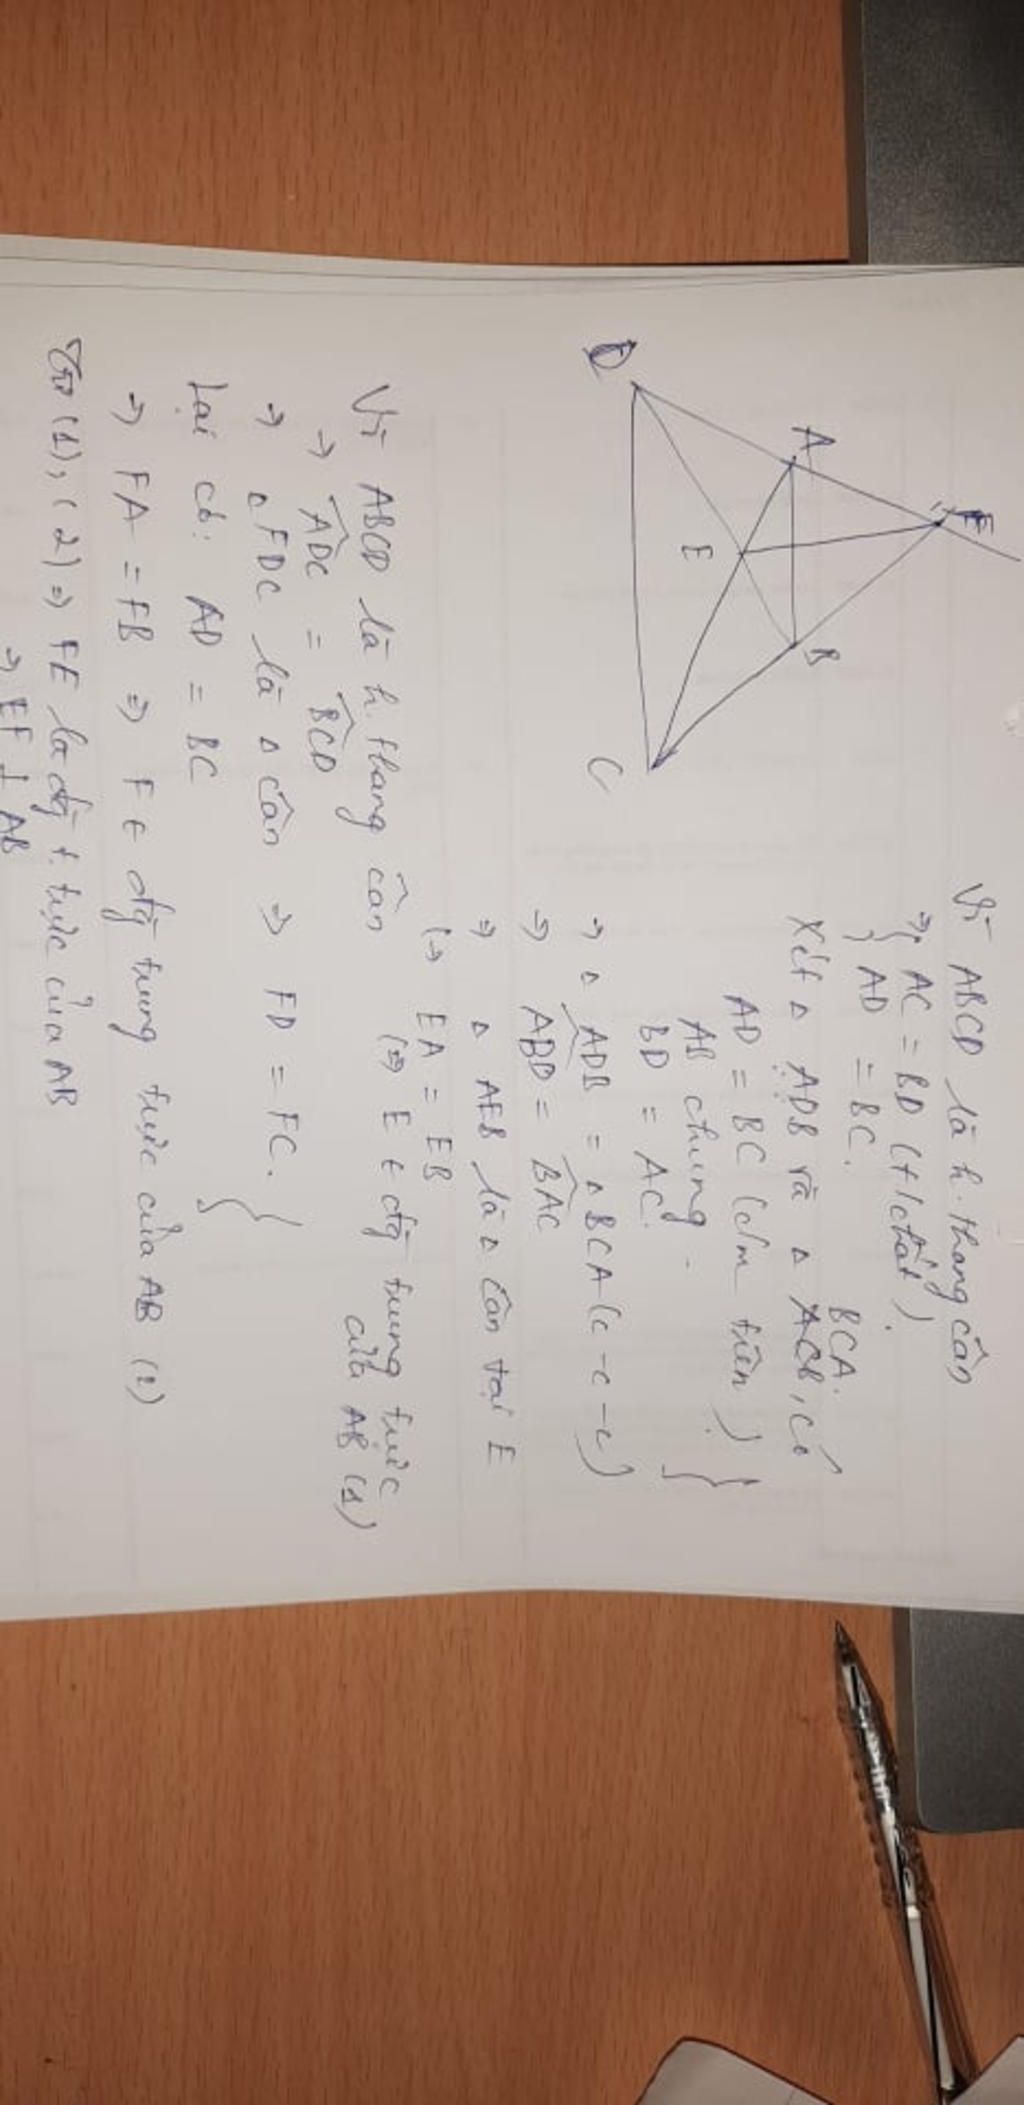 D
A
F
E
B
C
Vì ABCD là h.thang cân
⇒ { AC = BD (t/chất).
{ AD = BC.
BCA.
Xét Δ ADB và Δ ACB, có
AD = BC (c/m trên)
AB chung.
BD = AC.
⇒ Δ ADB = Δ BCA (c-c-c)
⇒ ABD = BAC
⇒ Δ AEB là Δ cân tại E
⇒ EA = EB
⇒ E ∈ đg trung trực
của AB (1)
Vì ABCD là h.thang cân
⇒ ADC = BCD
⇒ Δ FDC là Δ cân ⇒ FD = FC. }
Lại có: AD = BC
⇒ FA = FB ⇒ F ∈ đg trung trực của AB (2)
Từ (1), (2) ⇒ FE là đg t.trực của AB
⇒ EF ⊥ AB